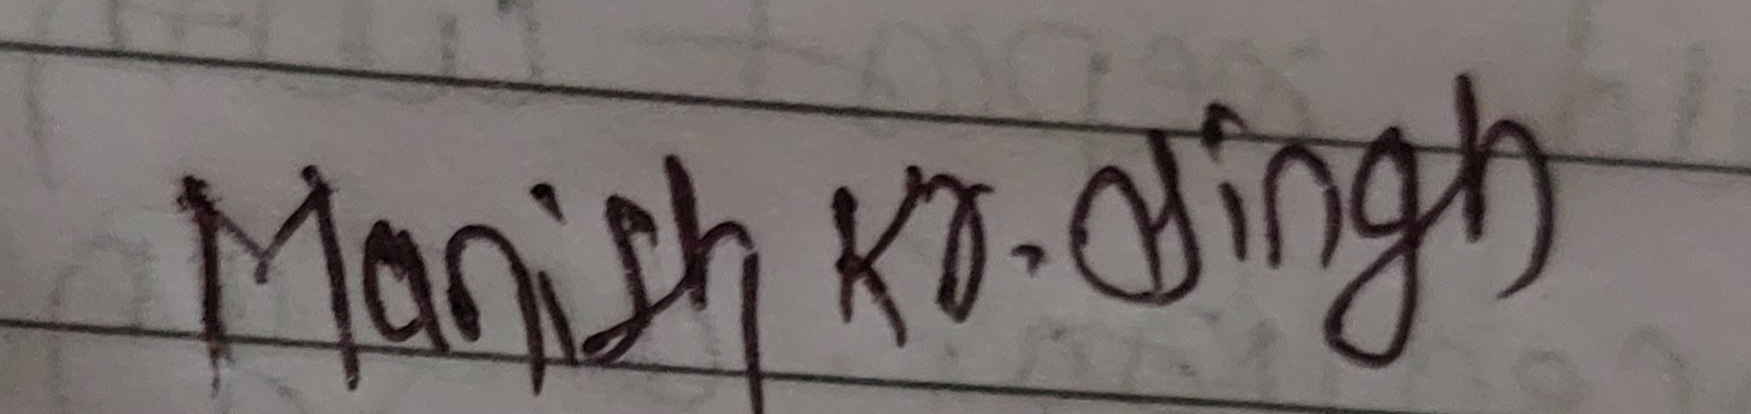 Manish Kr. Singh